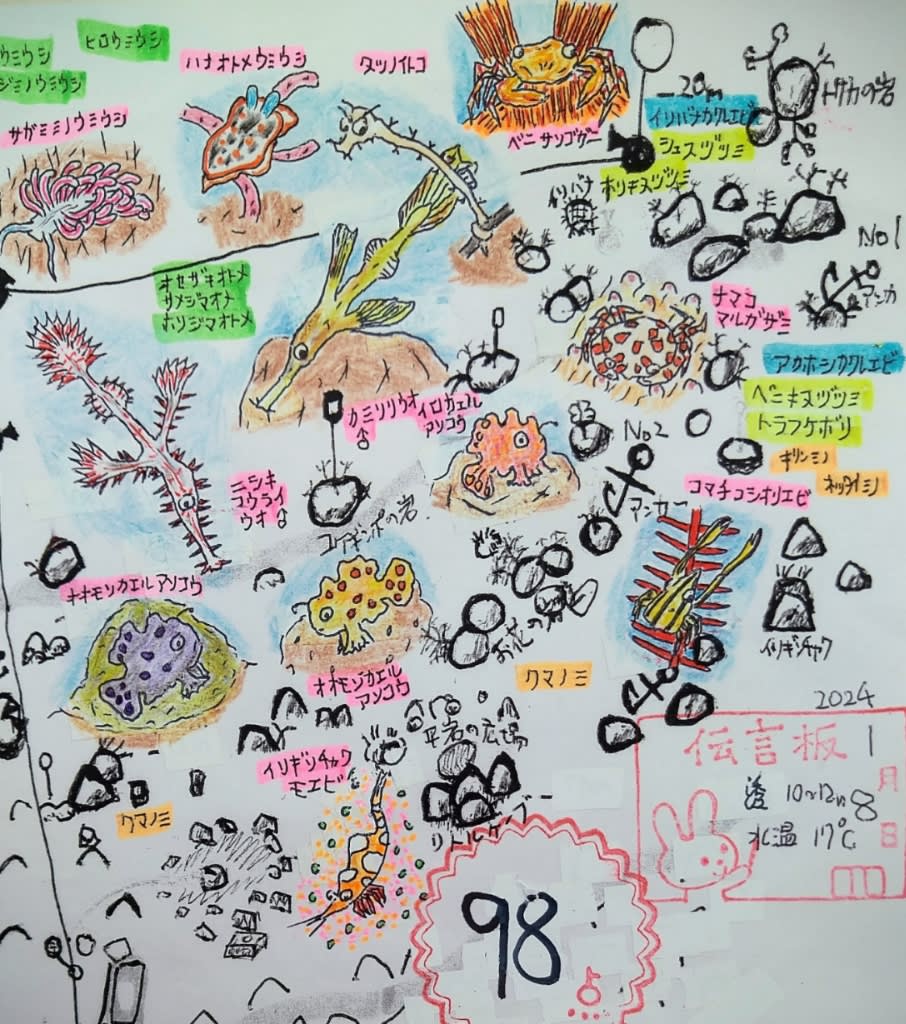 ヒロウミウシ
ウミウシ
ジミノウミウシ
ハナオトメウミウシ
タツノイトコ
サガミミノウミウシ
ベニサンゴガニ
-20m
イソバナカクレエビ
シュスヅツミ
ホリキヌヅツミ
イソバナ
トサカの岩
No1
アンカー
オセザキオトメ
サメジマオトメ
ホリジマオトメ
ナマコ
マルガザミ
アカホシカクレエビ
ベニキヌヅツミ
トラフケボリ
キリンミノ
ネッタイミノ
カミソリウオ
♂
イロカエル
アンコウ
No2
アンカー
コマチコシオリエビ
ニシキ
フウライ
ウオ♂
コケギンポの岩
オオモンカエルアンコウ
オオモンカエル
アンコウ
お花の
クマノミ
イソギンチャク
イソギンチャク
モエビ
平岩の広場
クマノミ
2024
伝言板
1月8日
透 10~12m
水温 17℃
98点